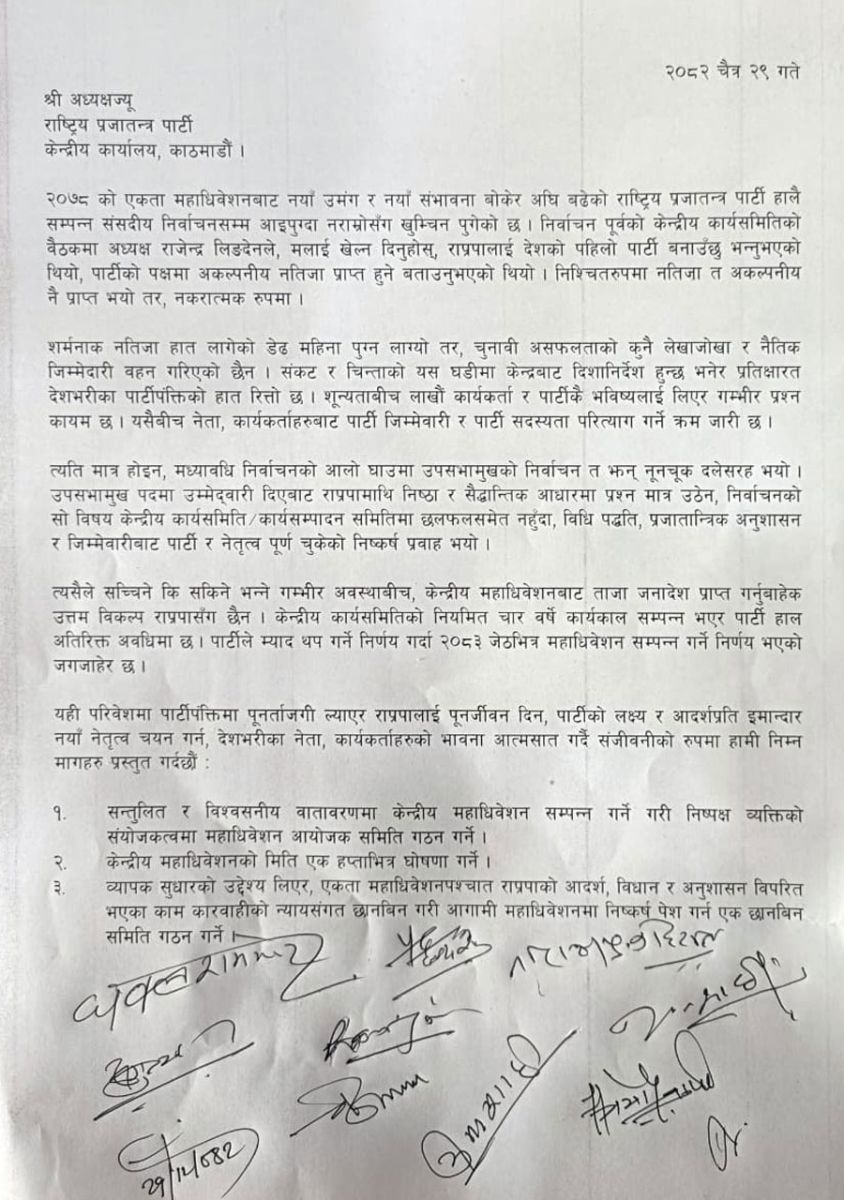 २०८२ चैत्र २९ गते
श्री अध्यक्षज्यू
राष्ट्रिय प्रजातन्त्र पार्टी
केन्द्रीय कार्यालय, काठमाडौं ।
२०७८ को एकता महाधिवेशनबाट नयाँ उमंग र नयाँ संभावना बोकेर अघि बढेको राष्ट्रिय प्रजातन्त्र पार्टी हालै
सम्पन्न संसदीय निर्वाचनसम्म आइपुग्दा नराम्रोसँग खुम्चिन पुगेको छ । निर्वाचन पूर्वको केन्द्रीय कार्यसमितिको
वैठकमा अध्यक्ष राजेन्द्र लिङदेनले, मलाई खेल्न दिनुहोस्, राप्रपालाई देशको पहिलो पार्टी बनाउँछु भन्नुभएको
थियो, पार्टीको पक्षमा अकल्पनीय नतिजा प्राप्त हुने बताउनुभएको थियो । निश्चितरुपमा नतिजा त अकल्पनीय
नै प्राप्त भयो तर, नकरात्मक रुपमा ।
शर्मनाक नतिजा हात लागेको डेढ महिना पुग्न लाग्यो तर, चुनावी असफलताको कुनै लेखाजोखा र नैतिक
जिम्मेदारी वहन गरिएको छैन । संकट र चिन्ताको यस घडीमा केन्द्रबाट दिशानिर्देश हुन्छ भनेर प्रतिक्षारत
देशभरीका पार्टीपंक्तिको हात रित्तो छ । शून्यताबीच लाखौं कार्यकर्ता र पार्टीकै भविष्यलाई लिएर गम्भीर प्रश्न
कायम छ । यसैबीच नेता, कार्यकर्ताहरुबाट पार्टी जिम्मेवारी र पार्टी सदस्यता परित्याग गर्ने क्रम जारी छ ।
त्यति मात्र होइन, मध्यावधि निर्वाचनको आलो घाउमा उपसभामुखको निर्वाचन त झन् नूनचूक दलेसरह भयो ।
उपसभामुख पदमा उम्मेद्वारी दिएबाट राप्रपामाथि निष्ठा र सैद्धान्तिक आधारमा प्रश्न मात्र उठेन, निर्वाचनको
सो विषय केन्द्रीय कार्यसमिति/कार्यसम्पादन समितिमा छलफलसमेत नहुँदा, विधि पद्धति, प्रजातान्त्रिक अनुशासन
र जिम्मेवारीबाट पार्टी र नेतृत्व पूर्ण चुकेको निष्कर्ष प्रवाह भयो ।
त्यसैले सच्चिने कि सकिने भन्ने गम्भीर अवस्थाबीच, केन्द्रीय महाधिवेशनबाट ताजा जनादेश प्राप्त गर्नुबाहेक
उत्तम विकल्प राप्रपासँग छैन । केन्द्रीय कार्यसमितिको नियमित चार वर्षे कार्यकाल सम्पन्न भएर पार्टी हाल
अतिरिक्त अवधिमा छ । पार्टीले म्याद थप गर्ने निर्णय गर्दा २०८३ जेठभित्र महाधिवेशन सम्पन्न गर्ने निर्णय भएको
जगजाहेर छ ।
यही परिवेशमा पार्टीपंक्तिमा पूनर्ताजगी ल्याएर राप्रपालाई पूनर्जीवन दिन, पार्टीको लक्ष्य र आदर्शप्रति इमान्दार
नयाँ नेतृत्व चयन गर्न, देशभरीका नेता, कार्यकर्ताहरुको भावना आत्मसात गर्दै संजीवनीको रुपमा हामी निम्न
मागहरु प्रस्तुत गर्दछौं :
१. सन्तुलित र विश्वसनीय वातावरणमा केन्द्रीय महाधिवेशन सम्पन्न गर्ने गरी निष्पक्ष व्यक्तिको
संयोजकत्वमा महाधिवेशन आयोजक समिति गठन गर्ने ।
२. केन्द्रीय महाधिवेशनको मिति एक हप्ताभित्र घोषणा गर्ने ।
३. व्यापक सुधारको उद्देश्य लिएर, एकता महाधिवेशनपश्चात राप्रपाको आदर्श, विधान र अनुशासन विपरित
भएका काम कारवाहीको न्यायसंगत छानबिन गरी आगामी महाधिवेशनमा निष्कर्ष पेश गर्न एक छानबिन
समिति गठन गर्ने ।